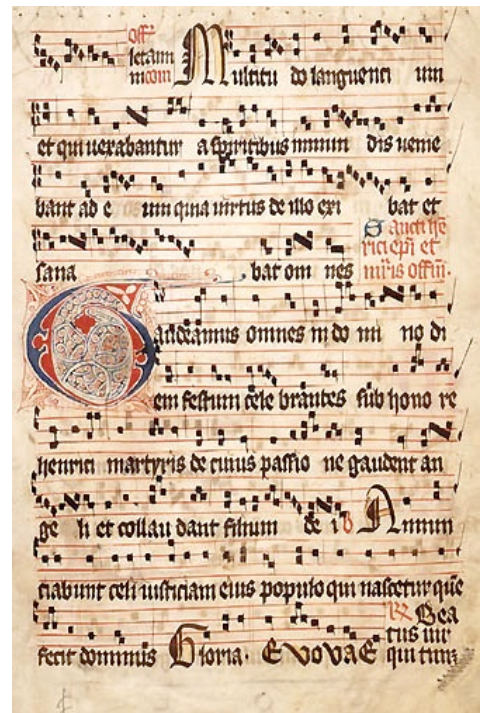 Off
letamini com Multitu do languenti um
et qui uexabantur a spiritibus inmun dis uenie
bant ad e um quia uirtus de illo exi bat et
sana bat om nes
Sancti he
rici epi et
mris offm.
Gaudeamus omnes in do mi no di
em festum cele brantes sub hono re
henrici martyris de cuius passio ne gaudent an
ge li et collau dant filium de i Annun
ciabunt celi iusticiam eius populo qui nascetur que
fecit dominus Gloria. Evovae Bea
tus uir
qui tim